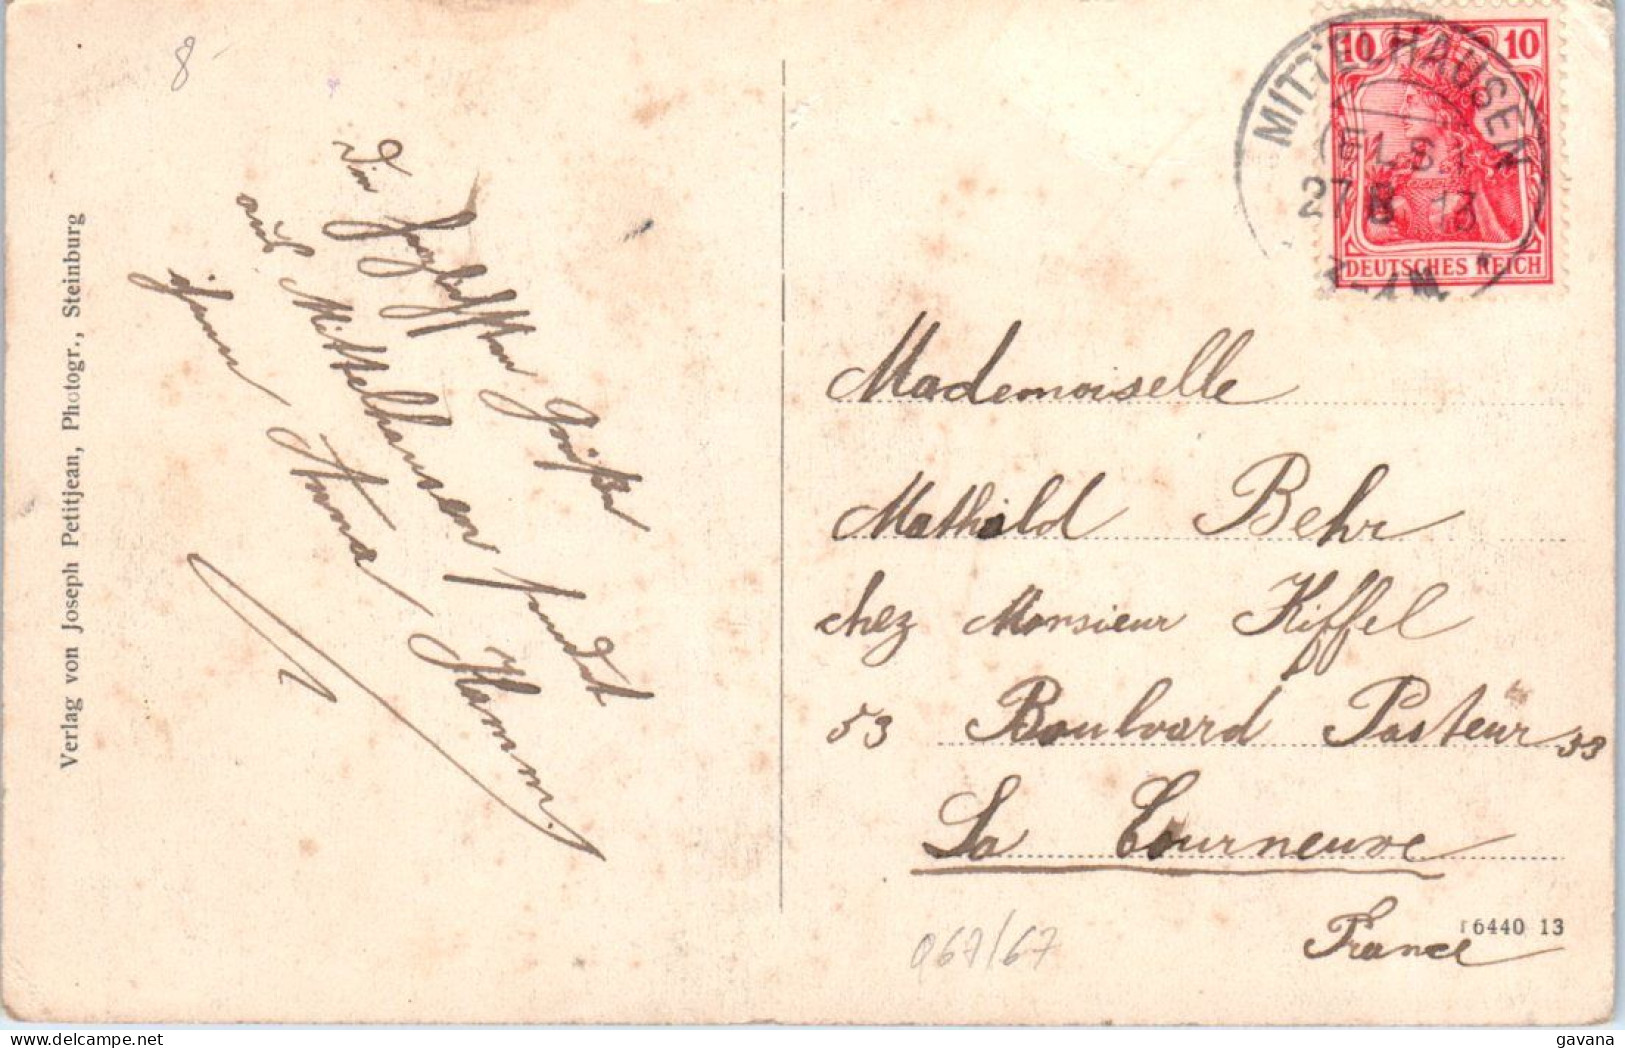 8
Die herzlichsten Grüße
aus Mittelhausen sendet
ihnen Anna Hamm.
Verlag von Joseph Petitjean, Photogr., Steinburg
10 10
DEUTSCHES REICH
MITTELHAUSEN
(ELS.)
27 8 13
Mademoiselle
Mathild Behr
chez Monsieur Kiffel
53 Boulvard Pasteur 53
La Courneuve
France
r 6440 13
067/67
gavana